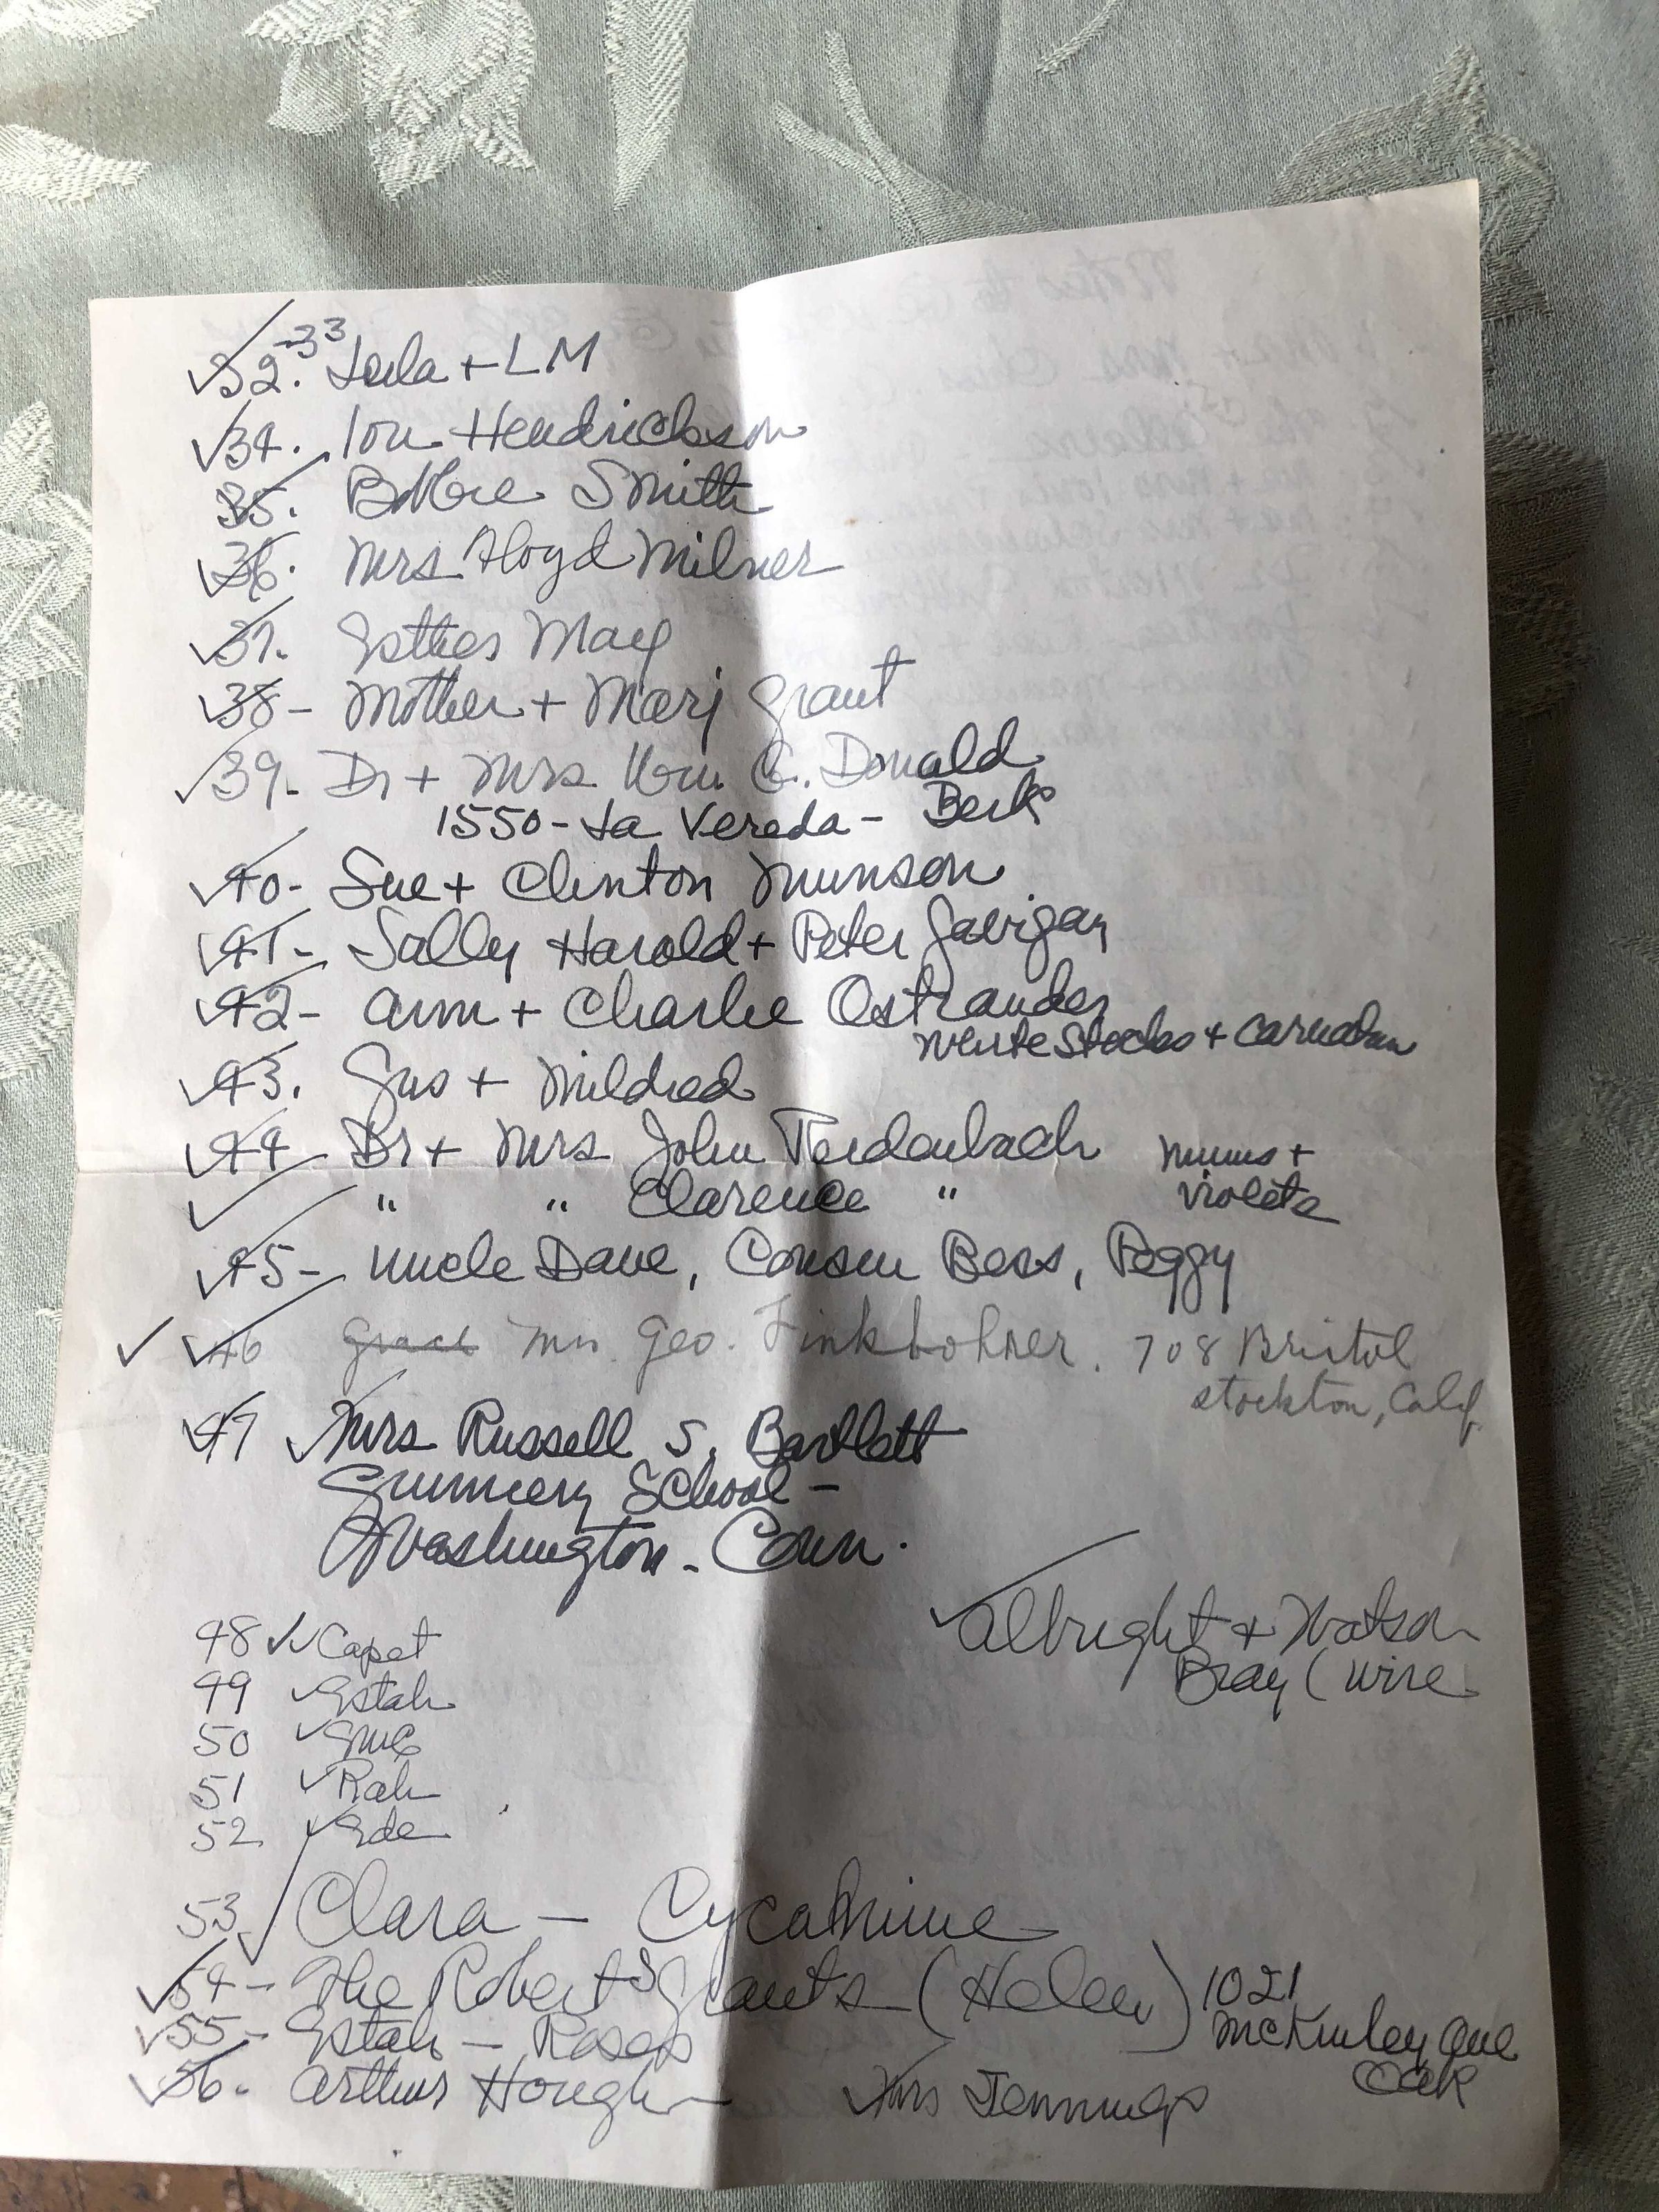 32.-33 Lela + LM
34. Ion Hendrickson
35. Smith
36. Mrs Floyd Milner
37. Esther May
38- Mother + Marj Grant
39- Dr + Mrs Wm G. Donald
1550- La Vereda - Berk
40- Sue + Clinton Munson
41- Sally Harold + Peter Gavigan
42- Ann + Charlie Ostrander
White Stocks + Carnation
43. Gus + Mildred
44- Dr + Mrs John Mums +
" " Clarence " Violets
45- Uncle Dave, Cousin Bess, Peggy
46 Grace Mrs. Geo. Finkbohner. 708 Bristol
Stockton, Calif.
47 Mrs Russell S. Bartlett
Gunnery School -
Washington - Conn.
Albright + Watson
48 Capet
Bray (wire
49 Estah
50
51 Rah
52 Ede
53 Clara -
54- The Robert Grants (Helen) 1021
McKinley Ave
55- Estah - Roses
Oak
56. Arthur Hough Mrs Jennings